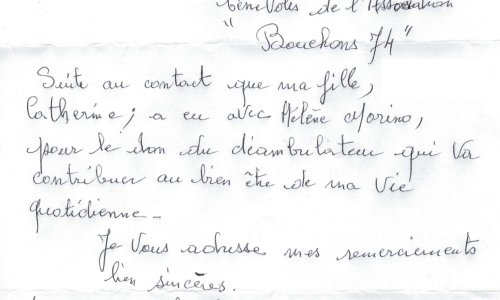 bénévoles de l'Association
" Bouchons 74"
Suite au contact que ma fille,
Catherine; a eu avec Hélène Morino,
pour le don du déambulateur qui va
contribuer au bien être de ma vie
quotidienne -
Je vous adresse mes remerciements
bien sincères.